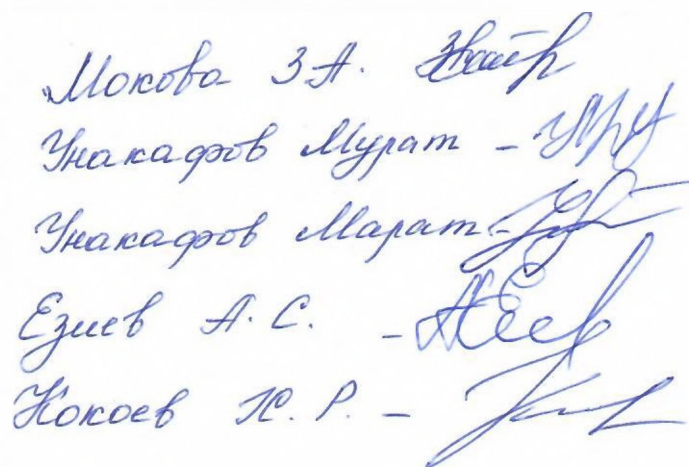 Мокова З.А.
Унакафов Мурат –
Унакафов Марат –
Езиев А.С. –
Кокоев К.Р. –